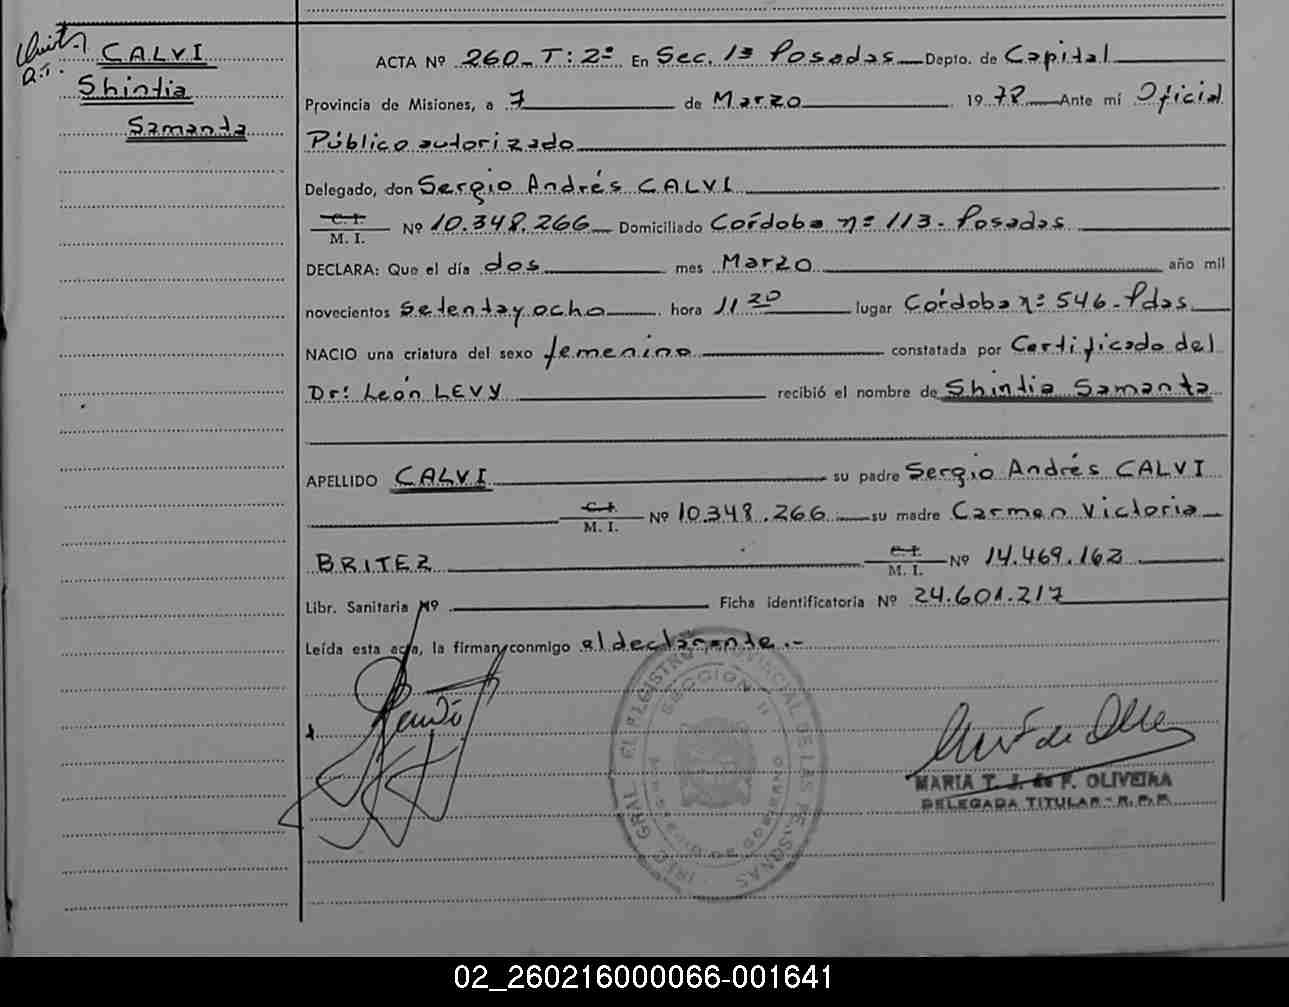 CALVI
Shintia
Samanta
ACTA Nº 260 - T: 2º En Sec. 1ª Posadas Depto. de Capital
Provincia de Misiones, a 7 de Marzo 1978 Ante mí Oficial
Público autorizado
Delegado, don Sergio Andrés CALVI
C. I.
M. I. Nº 10.348.266 Domiciliado Córdoba nº 113 - Posadas
DECLARA: Que el día dos mes Marzo año mil
novecientos setenta y ocho hora 11 20 lugar Córdoba nº 546 - Pdas.
NACIO una criatura del sexo femenino constatada por Certificado del
Dr: León LEVY recibió el nombre de Shintia Samanta
APELLIDO CALVI su padre Sergio Andrés CALVI
C. I.
M. I. Nº 10.348.266 su madre Carmen Victoria
BRITEZ C. I.
M. I. Nº 14.469.162
Libr. Sanitaria Nº Ficha identificatoria Nº 24.601.217
Leída esta acta, la firman conmigo el declarante.-
SECCION
MARIA T. J. de F. OLIVEIRA
DELEGADA TITULAR - R. P. P.
02_260216000066-001641